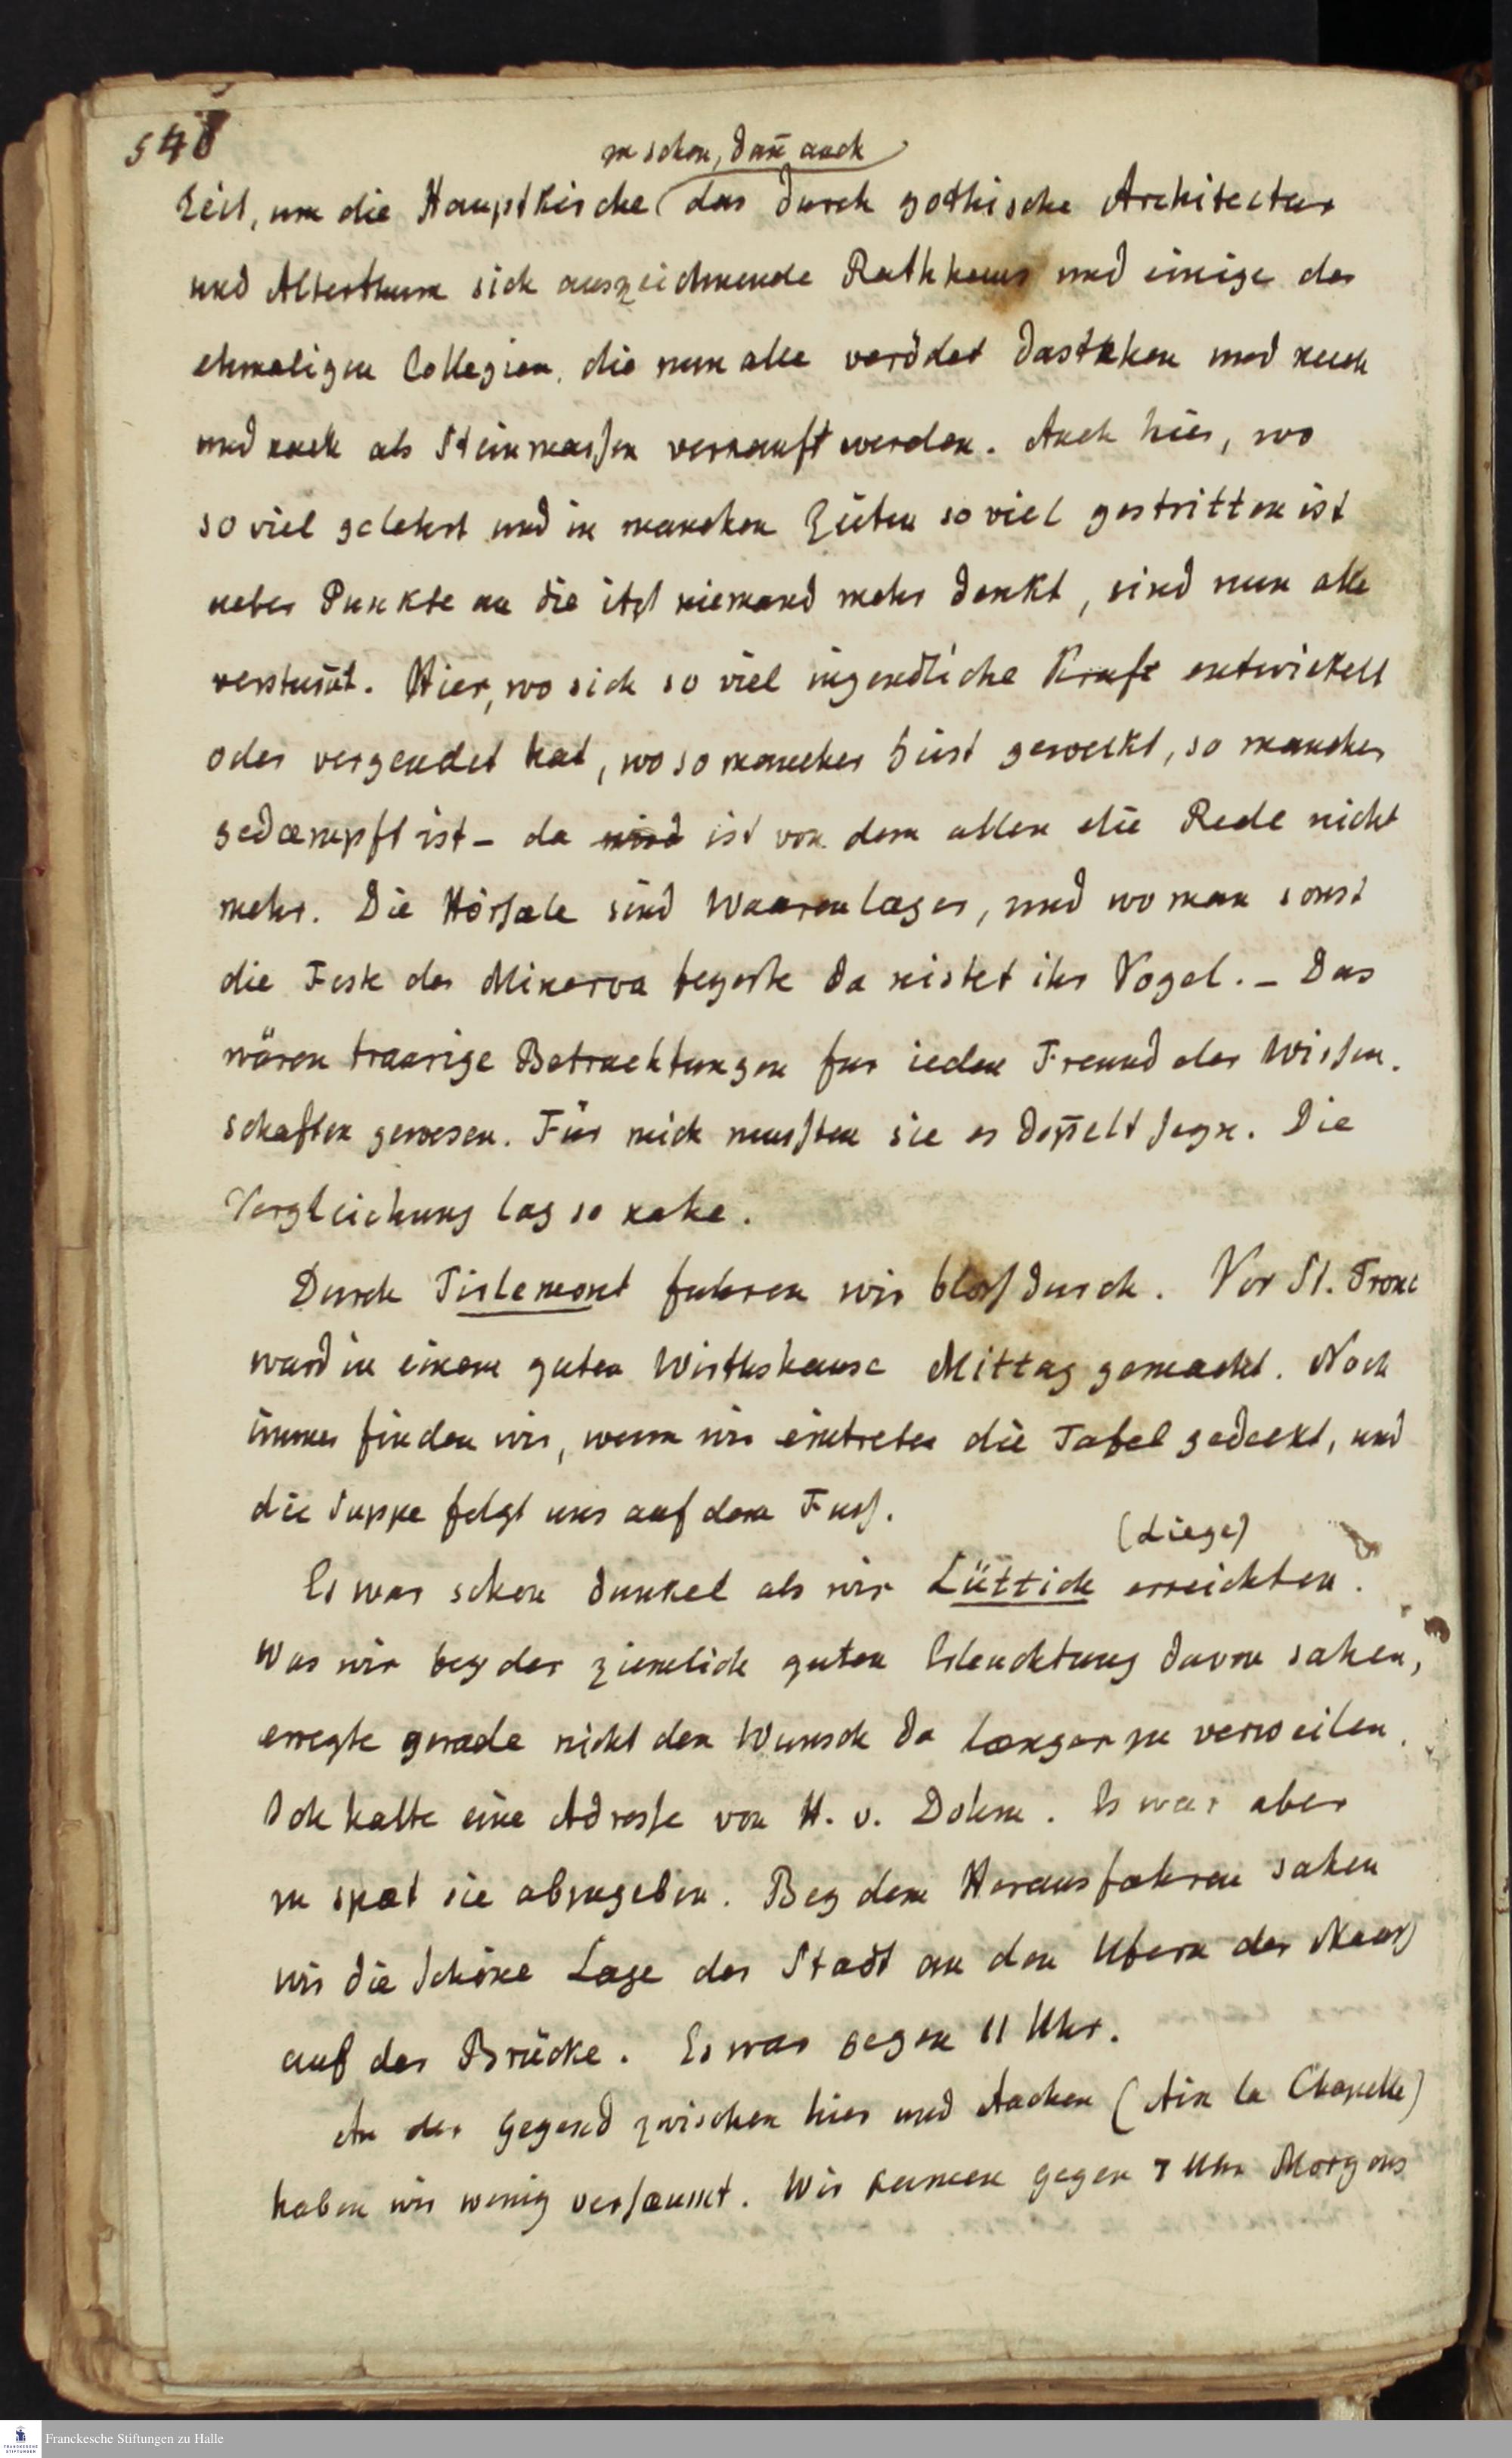 548
zu sehen, dan̄ auch
Zeit, um die Hauptkirche das durch gothische Architectur
und Alterthum sich auszeichnende Rathhaus und einige der
ehmaligen Collegien, die nun alle verödet dastehen und nach
und nach als Steinmassen verkauft werden. Auch hier, wo
so viel gelehrt und in manchen Zeiten so viel gestritten ist
ueber Punkte an die itzt niemand mehr denkt, sind nun alle
verstum̄t. Hier, wo sich so viel iugendliche Kraft entwickelt
oder vergeudet hat, wo so mancher Geist geweckt, so mancher
gedæmpft ist – da wird ist von dem allen die Rede nicht
mehr. Die Hörsæle sind Waarenlager, und wo man sonst
die Feste der Minerva begeht da nistet ihr Vogel. – Das
wären traurige Betrachtungen fur ieden Freund der Wissen-
schaften gewesen. Für mich mussten sie es dop̄elt seyn. Die
Vergleichung lag so nahe.
Durch Tirlemont fuhren wir bloss durch. Vor St. Tronc
ward in einem guten Wirthshause Mittag gemacht. Noch
immer finden wir, wenn wir eintreten die Tafel gedeckt, und
die Suppe folgt uns auf dem Fuss.
(Liege)
Es war schon dunkel als wir Lüttich erreichten.
Was wir bey der ziemlich guten Erleuchtung davon sahen,
erregte gerade nicht den Wunsch da længer zu verweilen.
Ich hatte eine Adresse von H. v. Dohm. Es war aber
zu spæt sie abzugeben. Bey dem Herausfahren sahen
wir die schöne Lage der Stadt an den Ufern der Maas
auf der Brücke. Es war gegen 11 Uhr.
An der Gegend zwischen hier und Aachen (Aix la Chapelle)
haben wir wenig versæumt. Wir kamen gegen 7 Uhr Morgens
Franckesche Stiftungen zu Halle